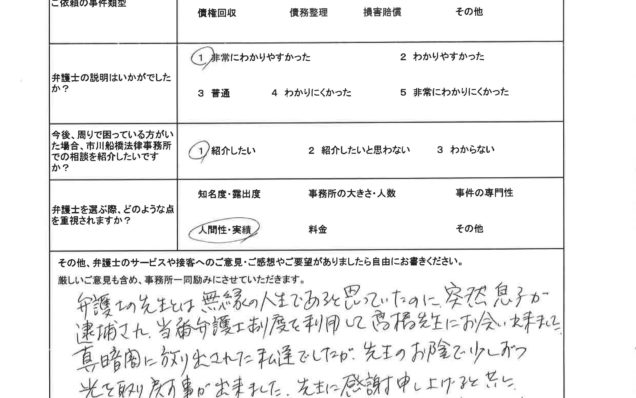 ご依頼の事件類型
債権回収 債務整理 損害賠償 その他
弁護士の説明はいかがでした
か？
1 非常にわかりやすかった 2 わかりやすかった
3 普通 4 わかりにくかった 5 非常にわかりにくかった
今後、周りで困っている方がい
た場合、市川船橋法律事務所
での相談を紹介したいです
か？
1 紹介したい 2 紹介したいと思わない 3 わからない
弁護士を選ぶ際、どのような点
を重視されますか？
知名度・露出度 事務所の大きさ・人数 事件の専門性
人間性・実績 料金 その他
その他、弁護士のサービスや接客へのご意見・ご感想やご要望がありましたら自由にお書きください。
厳しいご意見も含め、事務所一同励みにさせていただきます。
弁護士の先生とは無縁の人生であると思っていたのに、突然息子が
逮捕され、当番弁護士制度を利用して髙橋先生にお会い出来まして、
真暗闇に放り出された私達でしたが、先生のお陰で少しずつ
光を取り戻す事が出来ました。先生に感謝申し上げると共に、